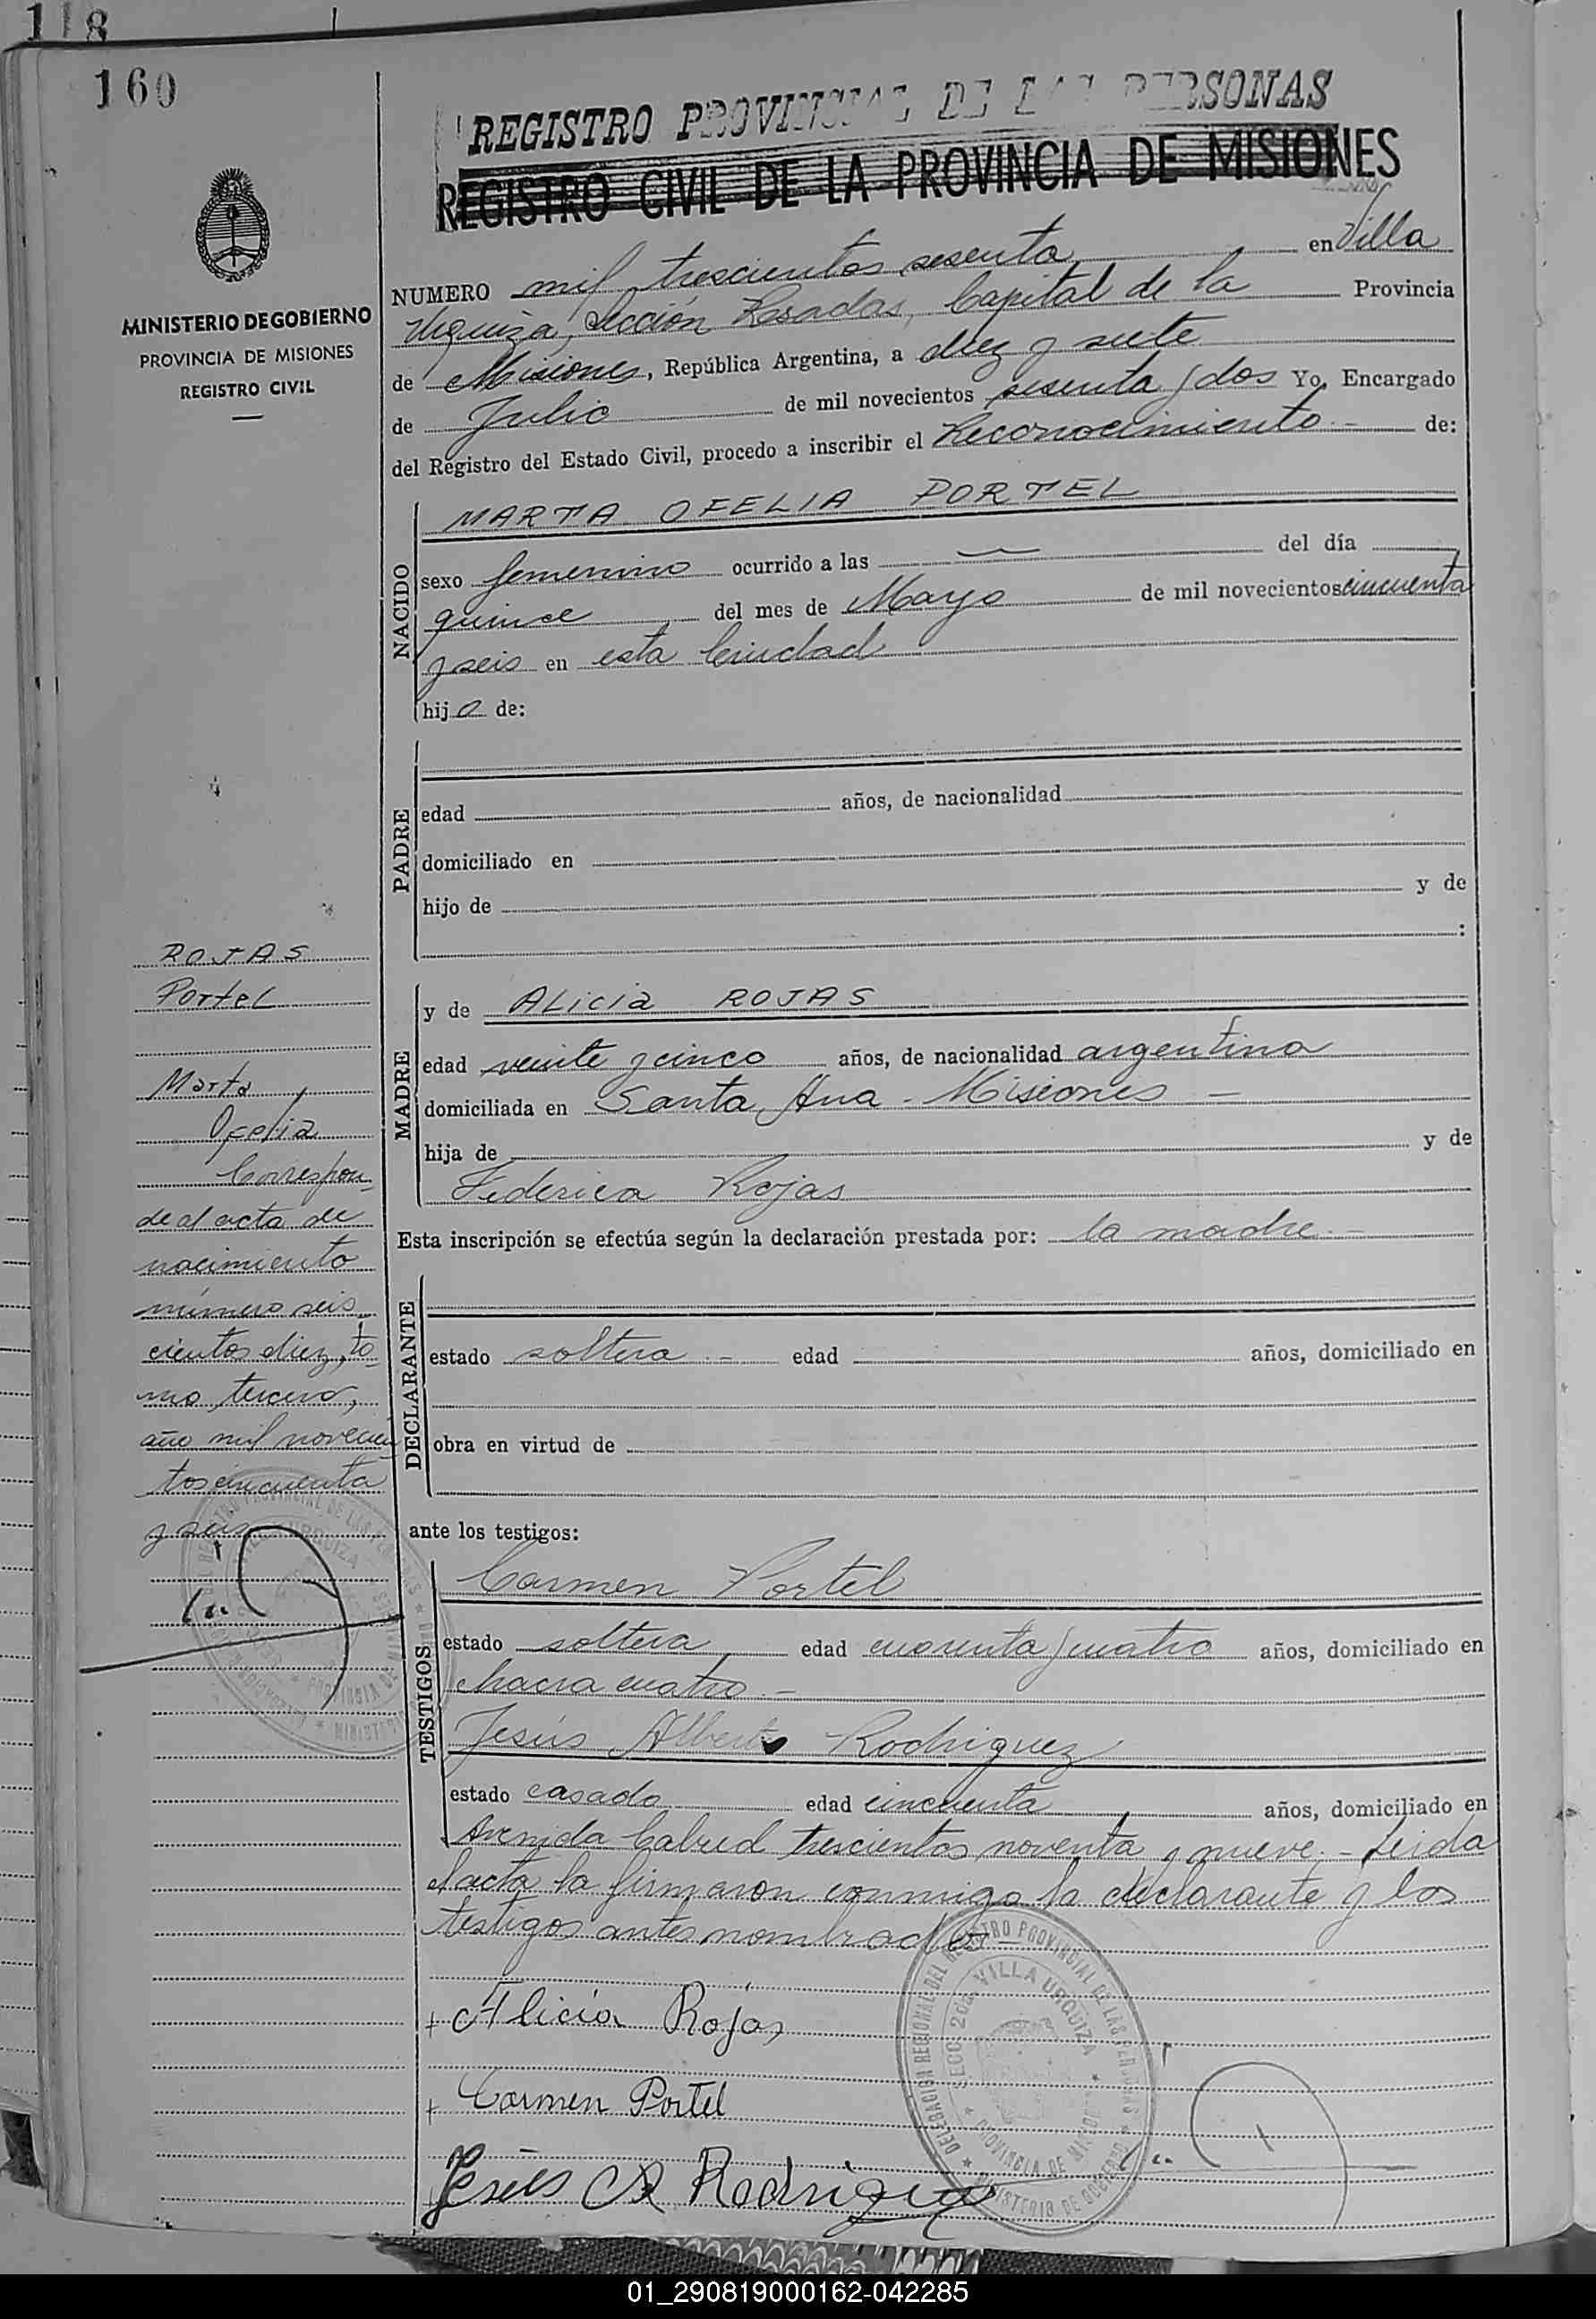 118
160
REGISTRO PROVINCIAL DE LAS PERSONAS
REGISTRO CIVIL DE LA PROVINCIA DE MISIONES
MINISTERIO DE GOBIERNO
PROVINCIA DE MISIONES
REGISTRO CIVIL
NUMERO mil trescientos sesenta en Villa
Urquiza, Sección Posadas, Capital de la Provincia
de Misiones, República Argentina, a diez y siete
de Julio de mil novecientos sesenta y dos Yo, Encargado
del Registro del Estado Civil, procedo a inscribir el Reconocimiento.- de:
NACIDO
MARTA OFELIA PORTEL
sexo femenino ocurrido a las — del día
quince del mes de Mayo de mil novecientos cincuenta
y seis en esta Ciudad
hija de:
PADRE
edad años, de nacionalidad
domiciliado en
hijo de y de
:
ROJAS
Portel
Marta
Ofelia
Correspon-
de al acta de
nacimiento
número seis
cientos diez, to-
mo tercero,
año mil novecien
tos cincuenta
y seis
MADRE
y de ALiciA ROJAS
edad veinte y cinco años, de nacionalidad argentina
domiciliada en Santa Ana - Misiones -
hija de y de
Federica Rojas
Esta inscripción se efectúa según la declaración prestada por: la madre.-
DECLARANTE
estado soltera.- edad años, domiciliado en
obra en virtud de
ante los testigos:
TESTIGOS
Carmen Portel
estado soltera edad cuarenta y cuatro años, domiciliado en
chacra cuatro.-
Jesús Alberto Rodriguez
estado casado edad cincuenta años, domiciliado en
Avenida Cabred trescientos noventa y nueve.- Leida
el acta la firmaron conmigo la declarante y los
testigos antes nombrados-
+ Alicia Rojas
+ Carmen Portel
Jesús A Rodriguez
DELEGACION REGIONAL DEL REGISTRO PROVINCIAL DE LAS PERSONAS
SECC. 2da. VILLA URQUIZA
PROVINCIA DE MISIONES
MINISTERIO DE GOBIERNO
01_290819000162-042285